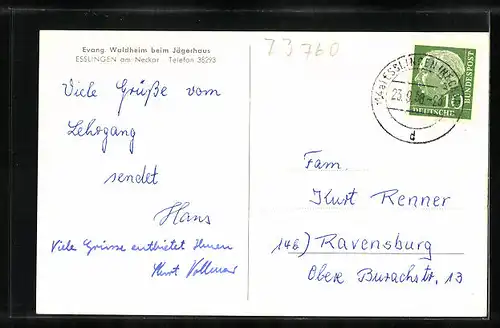 Evang. Waldheim beim Jägerhaus
ESSLINGEN am Neckar Telefon 38293
Viele Grüße vom
Lehrgang
sendet
Hans
Viele Grüsse entbietet Ihnen
Kurt Vollmer
73760
(14a) ESSLINGEN
23.9.
d
10
DEUTSCHE
BUNDESPOST
Fam.
Kurt Renner
14b) Ravensburg
Obere Burachstr. 13